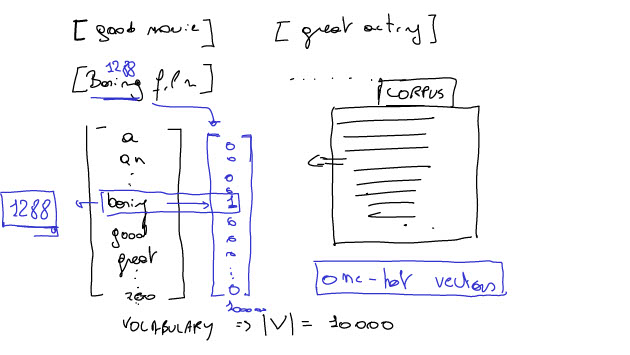 [good movie] [great acting]
1288
[Boring film]
CORPUS
a
an
boring
good
great
zoo
0
0
0
0
1
0
0
0
0
10000
1288
one-hot vectors
VOCABULARY => |V| = 10000